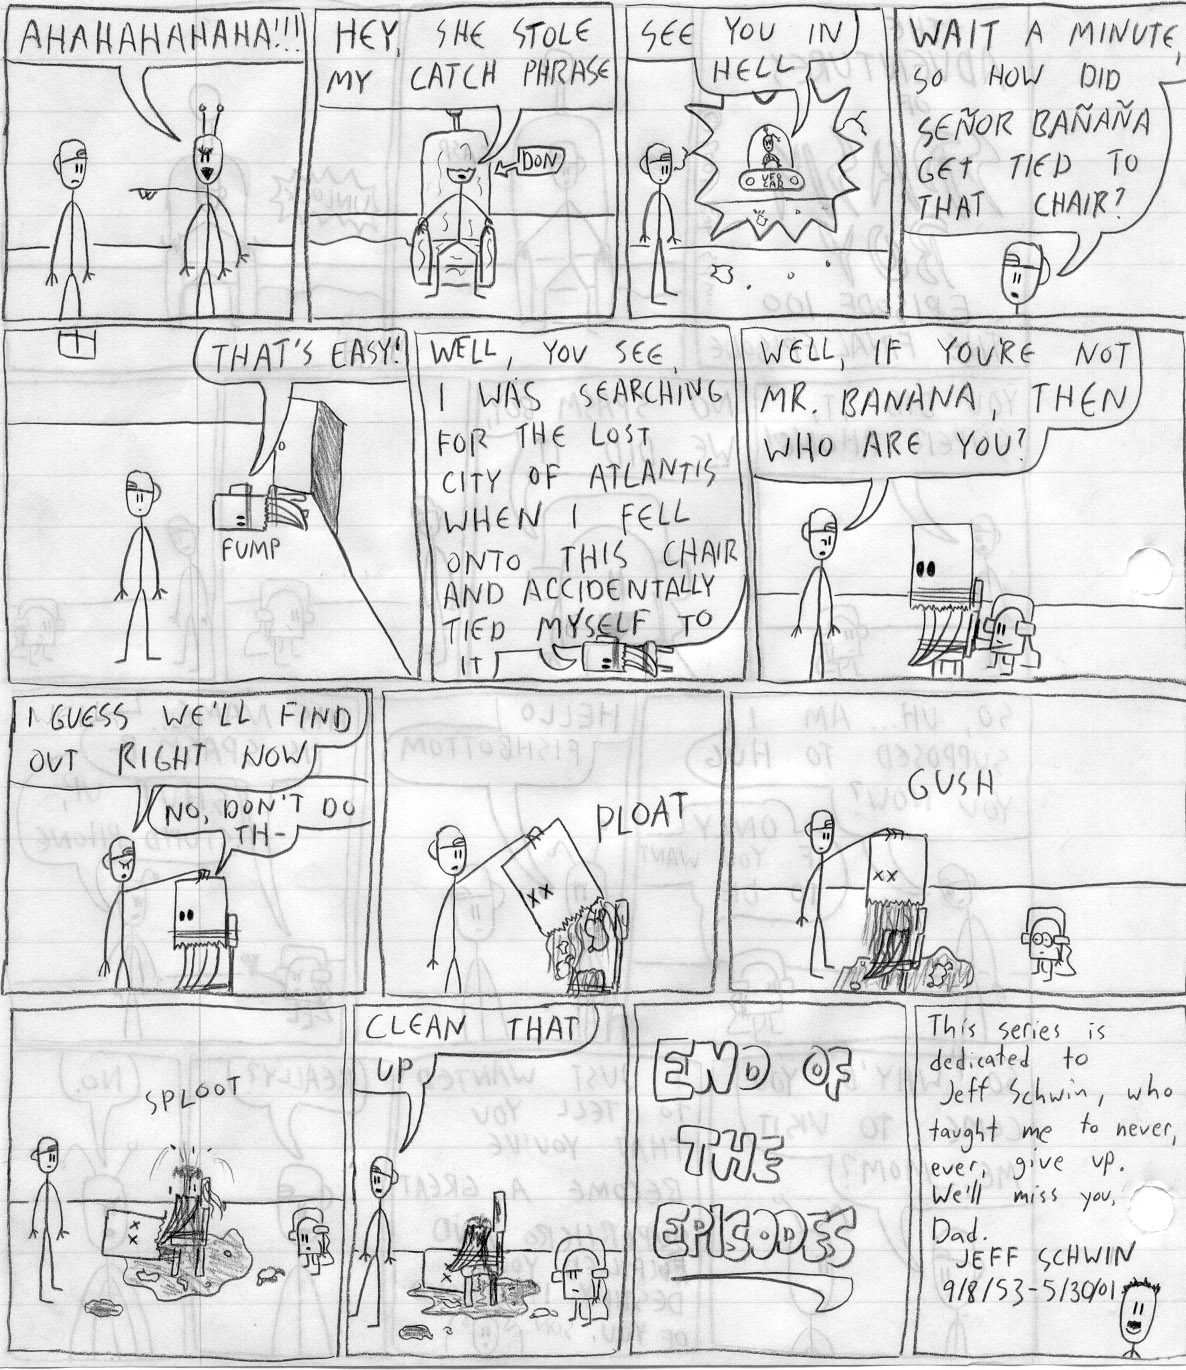 AHAHAHAHAHA!!!
HEY, SHE STOLE
MY CATCH PHRASE
DON
SEE YOU IN
HELL
UFO
CAR
WAIT A MINUTE,
SO HOW DID
SEÑOR BAÑAÑA
GET TIED TO
THAT CHAIR?
THAT'S EASY!
FUMP
WELL, YOU SEE,
I WAS SEARCHING
FOR THE LOST
CITY OF ATLANTIS
WHEN I FELL
ONTO THIS CHAIR
AND ACCIDENTALLY
TIED MYSELF TO
IT
WELL, IF YOU'RE NOT
MR. BANANA, THEN
WHO ARE YOU?
I GUESS WE'LL FIND
OUT RIGHT NOW
NO, DON'T DO
TH-
PLOAT
GUSH
SPLOOT
CLEAN THAT
UP
END OF
THE
EPISODES
This series is
dedicated to
Jeff Schwin, who
taught me to never,
ever, give up.
We'll miss you,
Dad.
JEFF SCHWIN
9/8/53-5/30/01